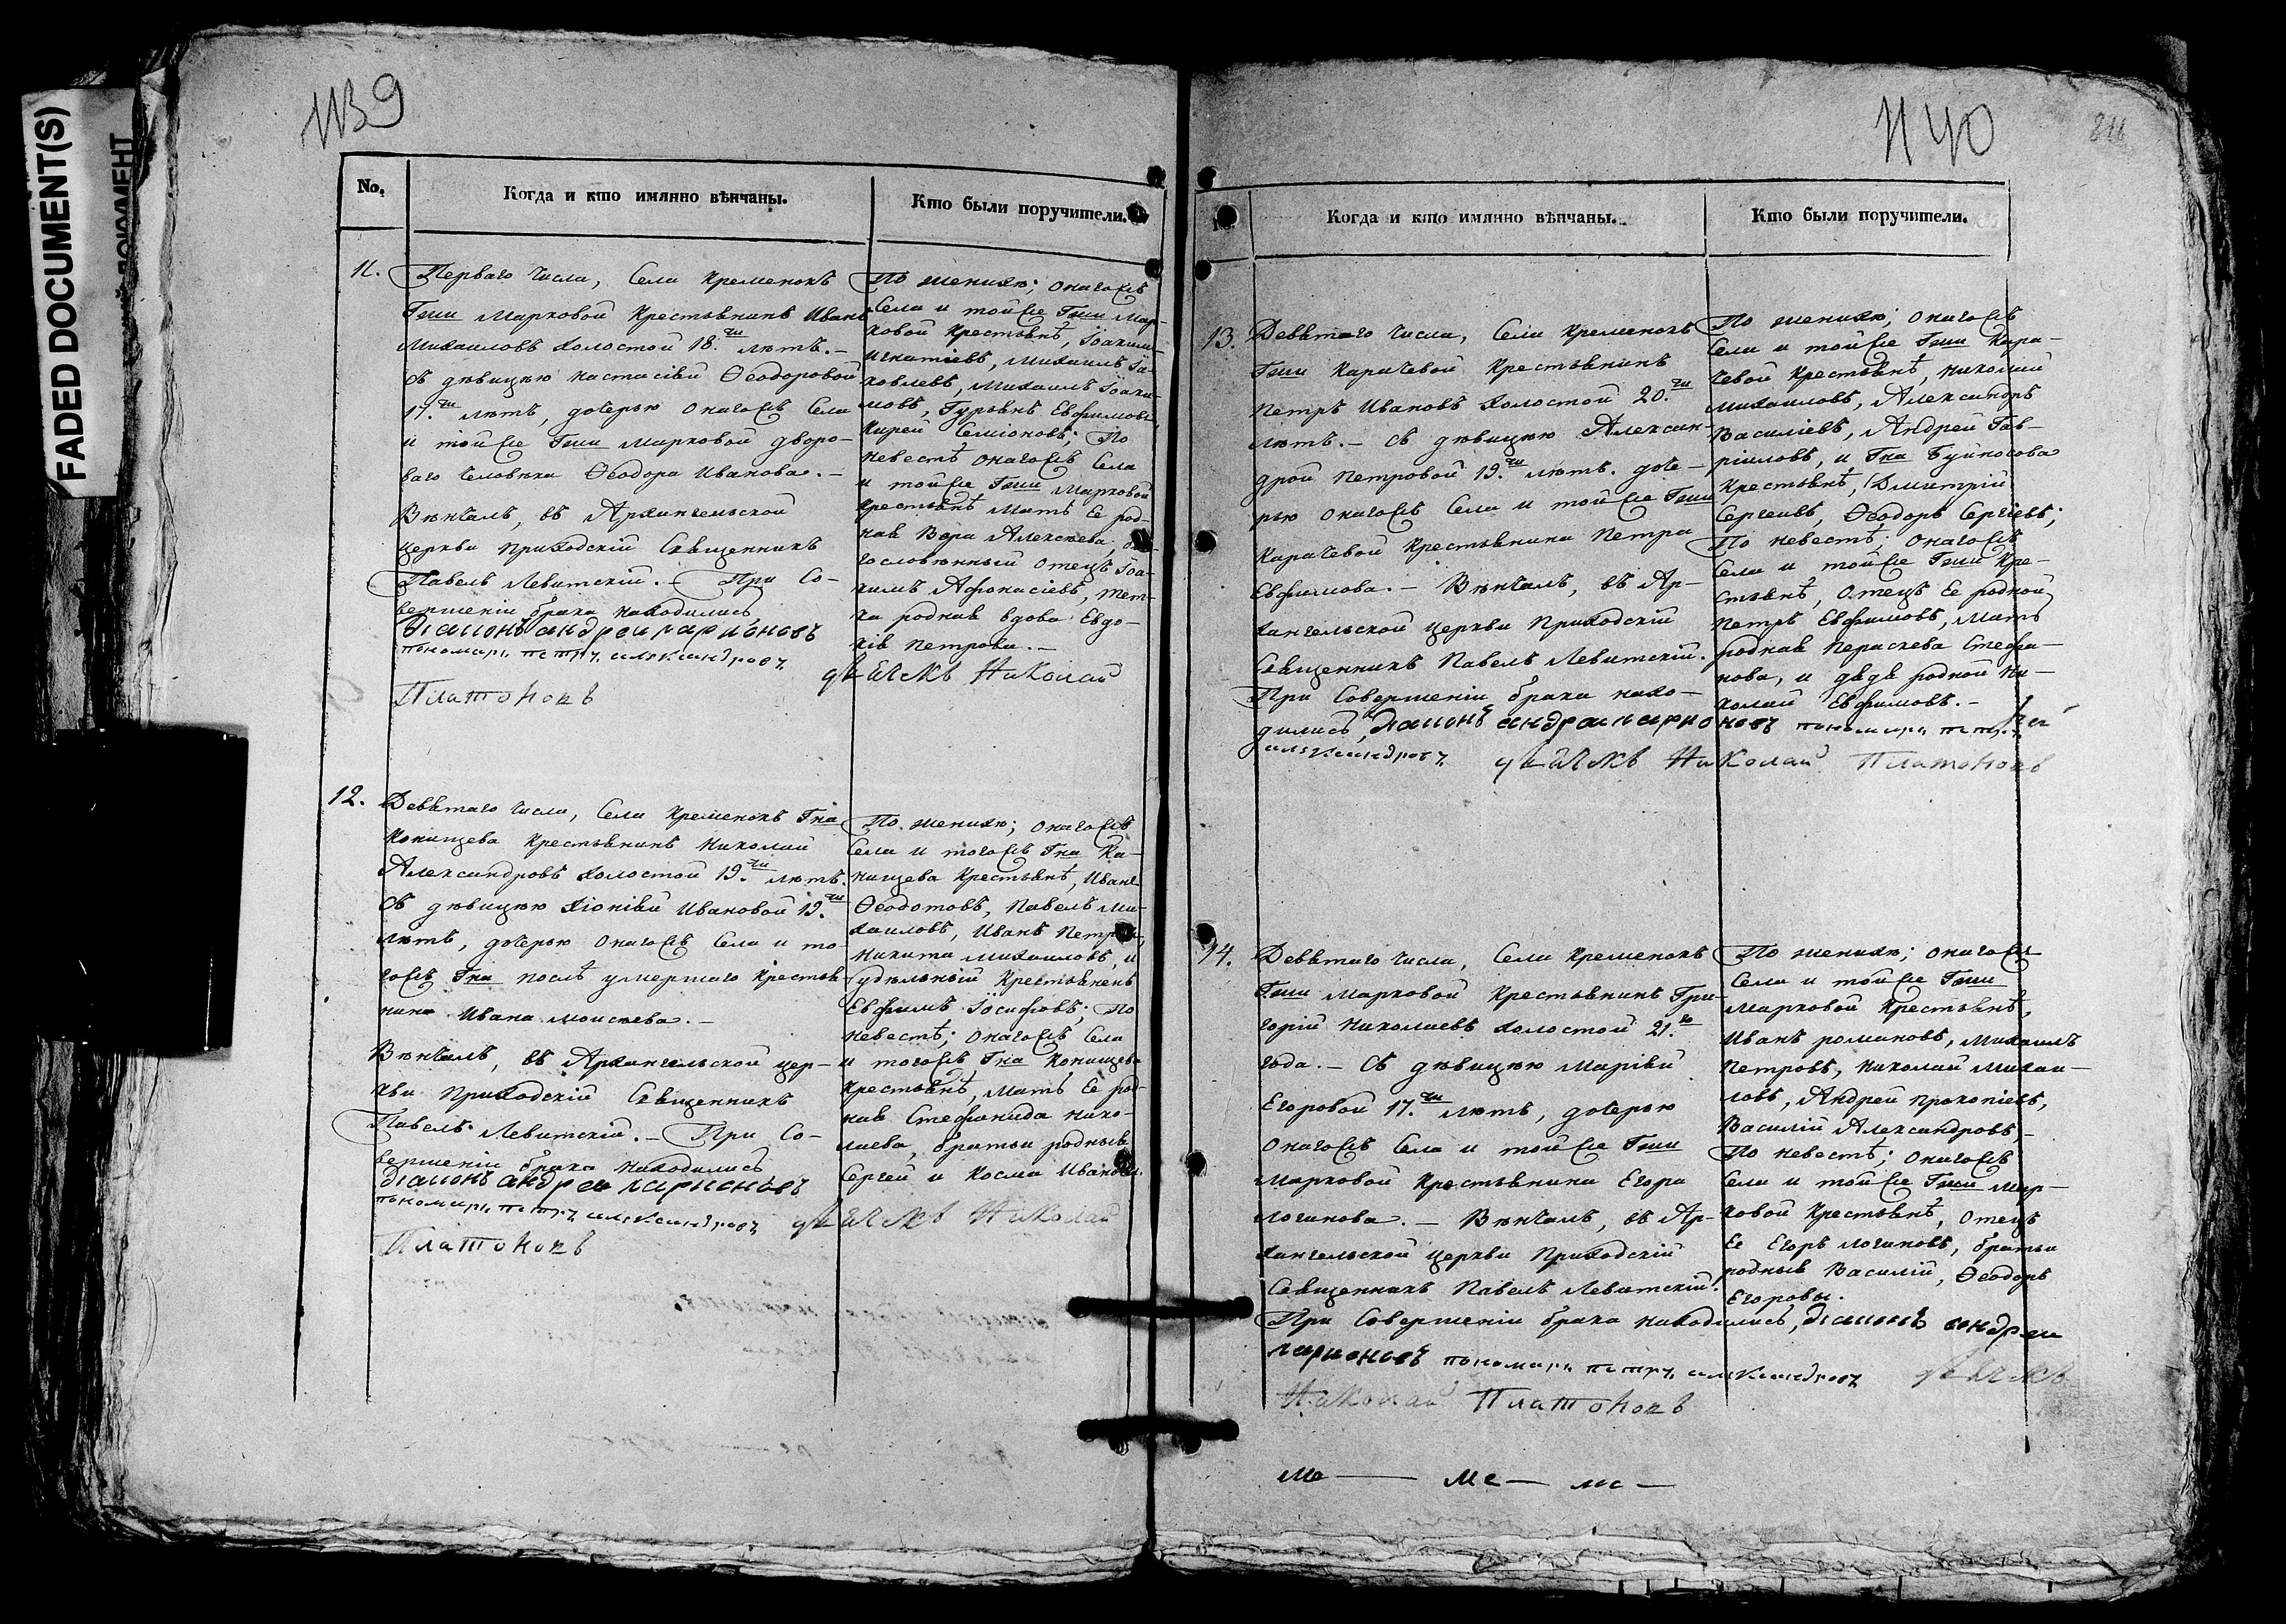 FADED DOCUMENT(S)
ДОКУМЕНТ
1139
No.
Когда и кто имянно вѣнчаны.
Кто были поручители.
11.
Перваго числа, Села Кременокъ
Гжи Марковой Крестьянинъ Иванъ
Михаиловъ холостой 18.ти лѣтъ. –
съ дѣвицею Настасіей Ѳеодоровой
17.ти лѣтъ, дочерью онагожъ Села
и той же Гжи Марковой дворо-
ваго человѣка Ѳеодора Иванова. –
Вѣнчалъ, въ Архангельской
церкви Приходскій Священникъ
Павелъ Левитскій. – При Со-
вершеніи брака находились
діаконъ андреи ларионовъ
пономарь петръ александровъ
дьячекъ Николай
Платоновъ
По женихю; онагожъ
Села и той же Гжи Мар-
ковой Крестьянѣ, Іоакимъ
Игнатіевъ, Михаилъ Іа-
ковлевъ, Михаилъ Іоаки-
мовъ, Гурьянъ Евфимовъ,
Кирей Семіоновъ; По
невестѣ онагожъ Села
и той же Гжи Марковой
Крестьянѣ Мать Ее род-
ная Вера Алексѣева,
гословенный отецъ Іоа-
кимъ Афонасіевъ, тет-
ка родная вдова Евдо-
кія Петрова. –
12.
Девятаго числа, Села Кременокъ Гна
Конищева Крестьянинъ Николай
Александровъ холостой 19.ти лѣтъ.
съ дѣвицею Хіоніей Ивановой 19.ти
лѣтъ, дочерью онагожъ Села и то-
гожъ Гна послѣ умершаго Крестья-
нина Ивана Моисѣева. –
Вѣнчалъ, въ Архангельской цер-
кви Приходскій Священникъ
Павелъ Левитскій. – При Со-
вершеніи брака находились
діаконъ андреи ларионовъ
пономарь петръ александровъ дьячекъ Николай
Платоновъ
По женихю; онагожъ
Села и тогожъ Гна Ко-
нищева Крестьянѣ, Иванъ
Ѳеодотовъ, Павелъ Ми-
хаиловъ, Иванъ Петровъ,
Никита Михаиловъ, и
удѣльный Крестьянинъ
Евфимъ Іосифовъ; По
невестѣ; онагожъ Села
и тогожъ Гна Конищева
Крестьянѣ, Мать Ее род-
ная Стефанида Нико-
лаева, братьи родныя
Сергей и Косма Ивановы.
1140
811
Когда и кто имянно вѣнчаны.
Кто были поручители.
13.
Девятаго числа, Села Кременокъ
Гжи Карачевой Крестьянинъ
Петръ Ивановъ холостой 20.ти
лѣтъ. – съ дѣвицею Алексан-
дрой Петровой 19.ти лѣтъ. доче-
рью онагожъ Села и той же Гжи
Карачевой Крестьянина Петра
Евфимова. – Вѣнчалъ, въ Ар-
хангельской церкви Приходскій
Священникъ Павелъ Левитскій.
При Совершеніи брака нахо-
дились, діаконъ андреи ларионовъ пономарь петръ
александровъ дьячекъ Николай Платоновъ
По женихю; онагожъ
Села и той же Гжи Кара-
чевой Крестьянѣ, Николай
Михаиловъ, Александръ
Василіевъ, Андрей Гав-
ріиловъ, и Гна Буйносова
Крестьянѣ, Димитрій
Сергеивъ, Ѳеодоръ Сергіевъ;
По невестѣ; онагожъ
Села и той же Гжи Кре-
стьянѣ, отецъ Ее родной
Петръ Евфимовъ, Мать
родная Параскева Стефа-
нова, и дядя родной Ни-
колай Евфимовъ. –
14.
Девятаго числа, Села Кременокъ
Гжи Марковой Крестьянинъ Гри-
горій Николаевъ холостой 21.го
года. – Съ дѣвицею Маріей
Егоровой 17.ти лѣтъ, дочерью
онагожъ Села и той же Гжи
Марковой Крестьянина Егора
Логинова. – Вѣнчалъ, въ Ар-
хангельской церкви Приходскій
Священникъ Павелъ Левитскій.
При Совершеніи брака находились, діаконъ андреи
ларионовъ пономарь петръ александровъ дьячекъ
Николай Платоновъ
По женихю; онагожъ
Села и той же Гжи
Марковой Крестьянѣ,
Иванъ романовъ, Михаилъ
Петровъ, Николай Михаи-
ловъ, Андрей Прокопіевъ,
Василій Александровъ, –
По невестѣ; онагожъ
Села и той же Гжи Мар-
ковой Крестьянѣ, Отецъ
Ее Егоръ Логиновъ, братьи
родныя Василій, Ѳеодоръ
Егоровы.